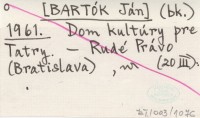 o [BARTÓK Ján] (bk.)
1961. Dom kultúry pre
Tatry. — Rudé Právo
(Bratislava), (20 III).